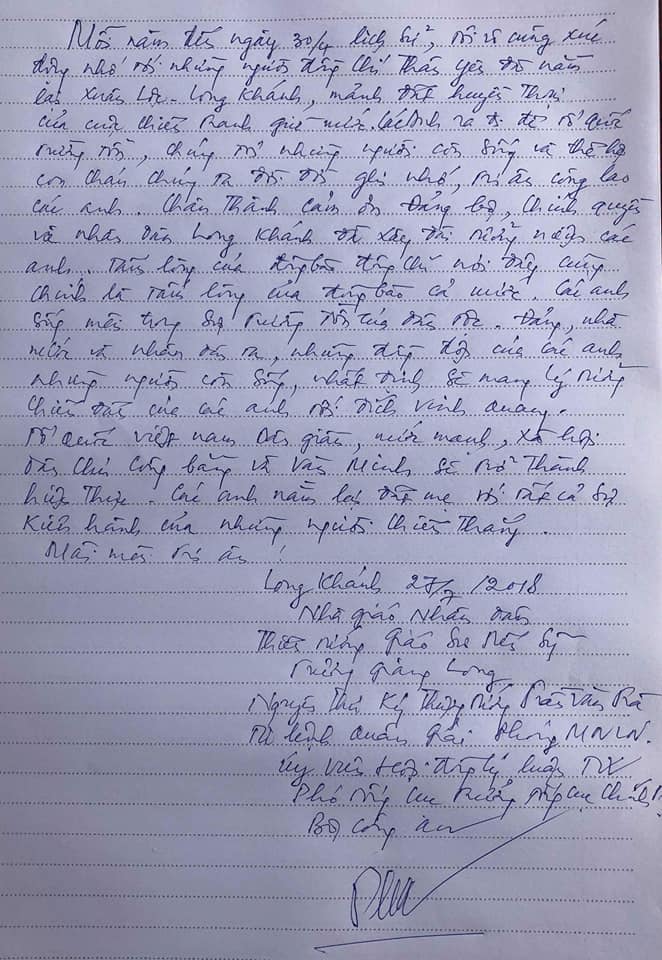 Mỗi năm đến ngày 30/4 lịch sử, tôi vô cùng xúc
động nhớ tới những người đồng chí thân yêu đã nằm
lại Xuân Lộc - Long Khánh, mảnh đất huyền thoại
của cuộc chiến tranh giữ nước. Các anh ra đi để tổ quốc
trường tồn, chúng tôi những người còn sống và thế hệ
con cháu chúng ta đời đời ghi nhớ, tri ân công lao
các anh. Chân thành cảm ơn Đảng bộ, chính quyền
và nhân dân Long Khánh đã xây đài tưởng niệm các
anh. Tấm lòng của đồng bào đồng chí nơi đây cũng
chính là tấm lòng của đồng bào cả nước. Các anh
sống mãi trong sự trường tồn của dân tộc. Đảng, nhà
nước và nhân dân ta, những đồng đội của các anh
những người còn sống, nhất định sẽ mang lý tưởng
chiến đấu của các anh tới đích vinh quang.
Tổ quốc Việt Nam dân giàu, nước mạnh, xã hội
dân chủ công bằng và văn minh sẽ trở thành
hiện thực. Các anh nằm lại đất mẹ với tất cả sự
kiêu hãnh của những người chiến thắng.
Mãi mãi tri ân!
Long Khánh 27/7/2018
Nhà giáo Nhân dân
Thiếu tướng Giáo sư Tiến sỹ
Trương Giang Long
Nguyên Thư Ký Thượng tướng Trần Văn Trà
Tư lệnh Quân Giải Phóng MNVN.
Ủy viên Hội đồng lý luận TW
Phó Tổng cục trưởng Tổng cục Chính
Bộ công an